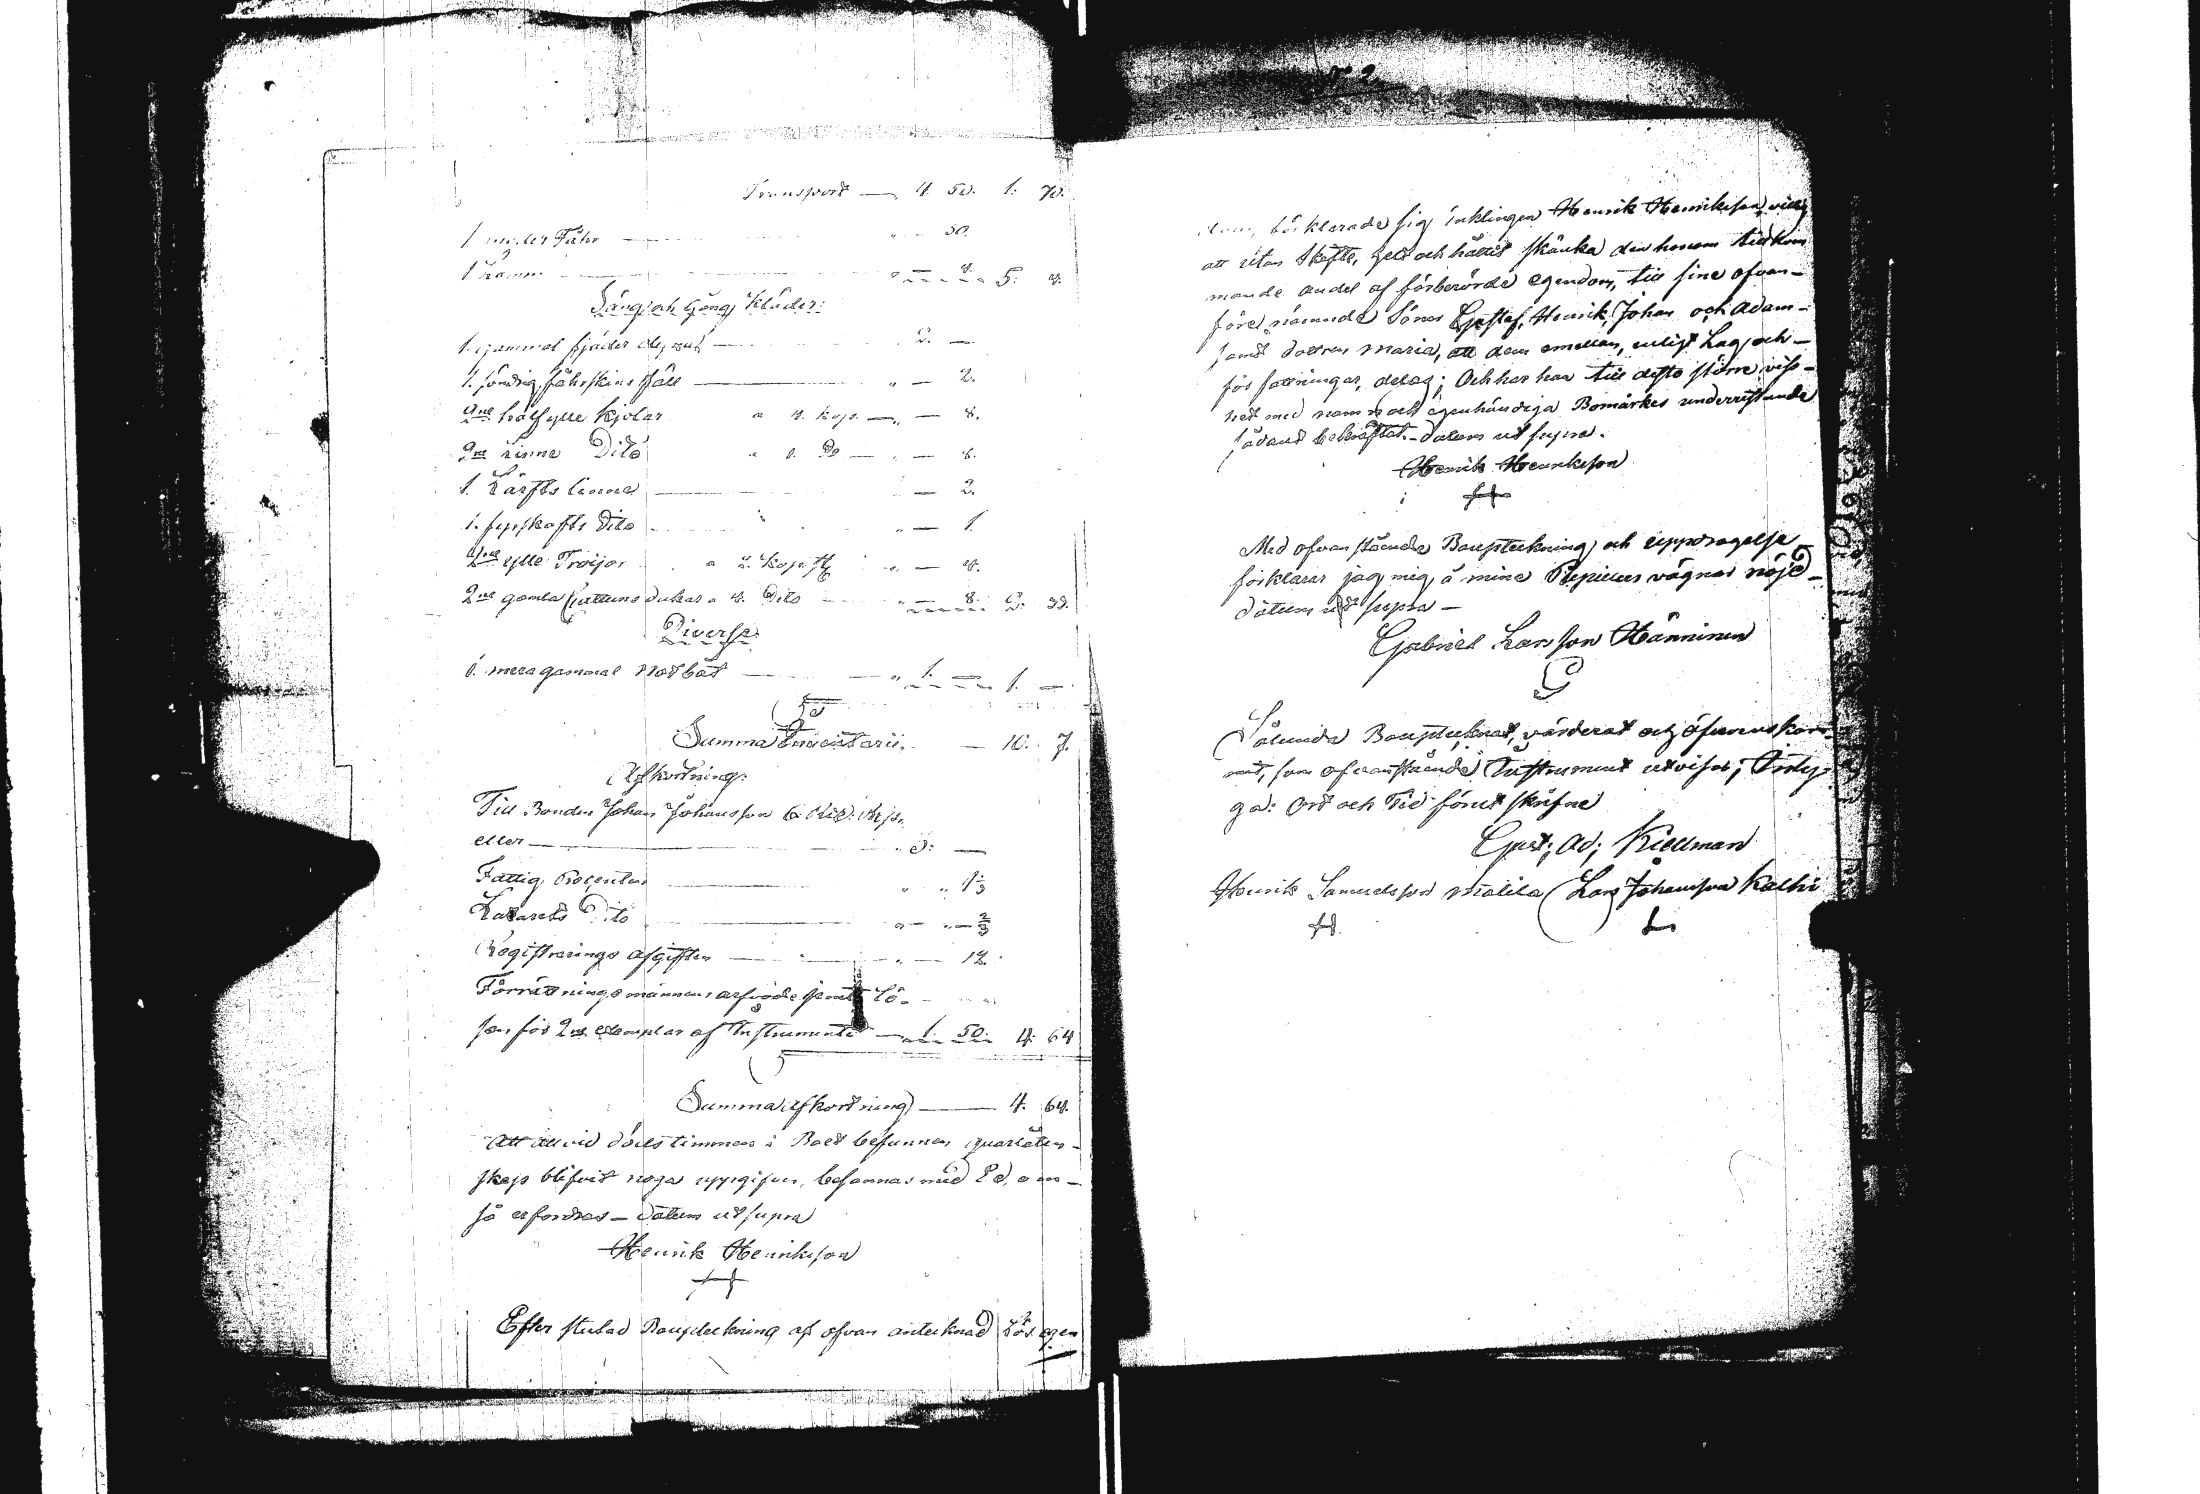 Transport — 4. 50. 1. 70.
1. moder Fåhr — " 50.
1 Lamm — " — 4. 5. 4.
Säng och Gång Kläder:
1. gammal fjäder — 2. —
1. söndrig fåhrskins fäll — " — 2.
2ne halfylle kjolar a 4. kop. — " — 8.
2ne linne Dito a 4. Do — " — 8.
1. Lärfts linne — 2.
1. fyrskafts Dito " — 1.
2ne ylle Tröijor a 2. Kop. st " — 4.
2ne gamla Cattuns dukar a 4. Dito " — 8. 2. 33.
Diverse
1. mera gammal Notbåt — " 1. — 1. —
Summa Inventarii. — 10. 7.
Afkortning:
Till Bonden Johan Johansson 6 Rub: Assgr.
eller — 3: —
Fattig Procenten — " " 1⅓
Lazarets Dito — " — " — ⅔
Registrerings afgiften — " — 12.
Förrättningsmännens arfvode jemte Lö-
sen för 2ne exemplar af Instrumentet — 1. 50. 4. 64
Summa Afkortning — 4. 64.
Att all vid döds timmen i Boet befunnen quarlåten-
skap blifvit noga uppgifven, besannas med Ed, om
så erfordras — Datum ut supra
Henrik Henriksson
Efter slutad Bouptekning af ofvan antecknad Lös egen
N 2.
dom, förklarade sig Enklingen Henrik Henriksson, villig
att utan skifte, geld och hållit skänka den honom tillkom
mande andel af förberörde egendom, till sine ofvan-
före nämnde Söner Gustaf, Henrik, Johan och Adam
samt dottren Maria, att dem emellan, enligt Lag och
för fattningar, delas; Och har han till desto större viss-
het med namn och egenhändiga Bomärkes underristande
sådant bekräftat. - Datum ut supra.
Henrik Henriksson
Med ofvan stående Bouptekning och uppdragelse
förklarar jag mig å mine Pupillers vägnar nöjd -
datum ut supra —
Gabriel Larsson Hänninen
Sålunda Bouptecknat, värderat och öfverenskom-
mit, som ofvanstående Instrument utvisar; Intyga
ga: Ort och Tid förut skrifne
Gust: Ad: Kiellman
Henrik Samuelsson Matila Lars Johansson Kalhi